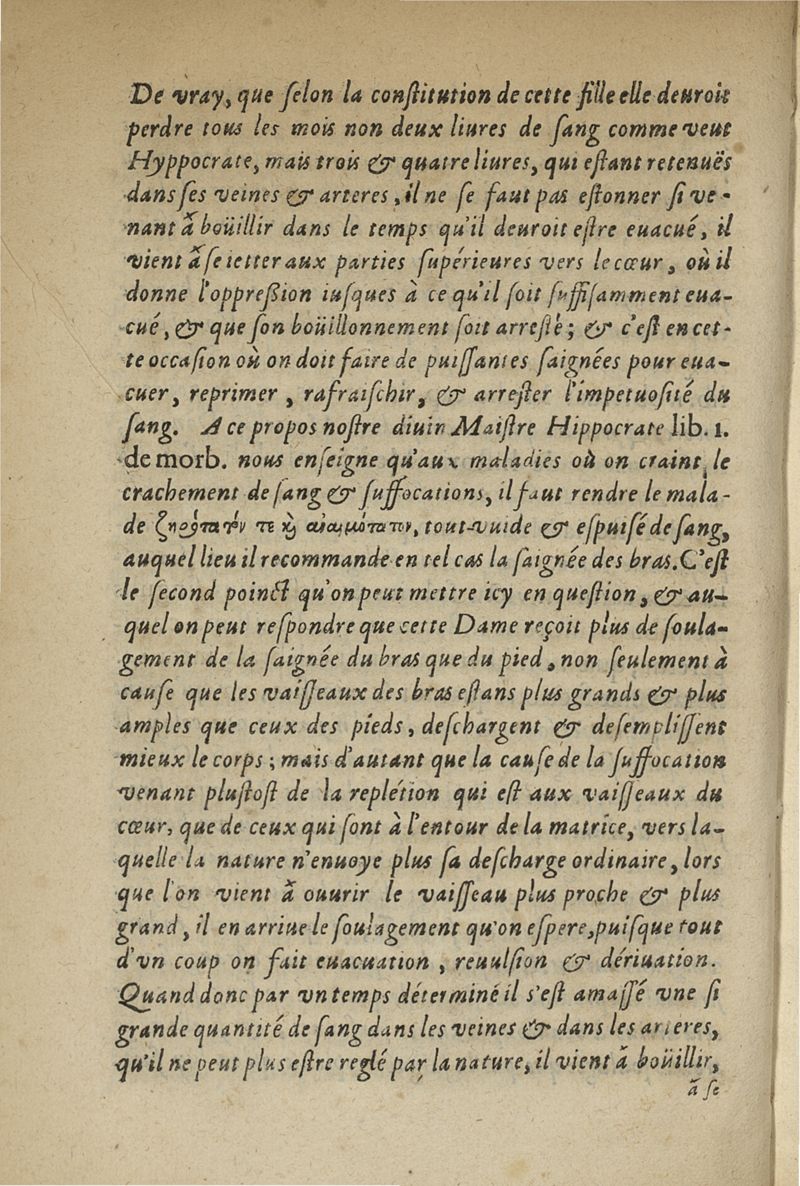 De vray, que ſelon la conſtitution de cette fille elle deuroit
perdre tous les mois non deux liures de ſang comme veut
Hyppocrate, mais trois & quatre liures, qui eſtant retenuës
dans ſes veines & arteres, il ne ſe faut pas eſtonner ſi ve-
nant à boüillir dans le temps qu'il deuroit eſtre euacué, il
vient à ſe ietter aux parties ſupérieures vers le cœur, où il
donne l'oppreſſion iuſques à ce qu'il ſoit ſuffiſamment eua-
cué, & que ſon boüillonnement ſoit arreſté; & c'eſt en cet-
te occaſion où on doit faire de puiſſantes ſaignées pour eua-
cuer, reprimer, rafraiſchir, & arreſter l'impetuoſité du
ſang. A ce propos noſtre diuin Maiſtre Hippocrate lib. 1.
de morb. nous enſeigne qu'aux maladies où on craint le
crachement de ſang & ſuffocations, il faut rendre le mala-
de τε ϗ tout-vuide & eſpuiſé de ſang,
auquel lieu il recommande en tel cas la ſaignée des bras. C'eſt
le ſecond poinct qu'on peut mettre icy en queſtion, & au-
quel on peut reſpondre que cette Dame reçoit plus de ſoula-
gement de la ſaignée du bras que du pied, non ſeulement à
cauſe que les vaiſſeaux des bras eſtans plus grands & plus
amples que ceux des pieds, deſchargent & deſempliſſent
mieux le corps; mais d'autant que la cauſe de la ſuffocation
venant pluſtoſt de la replétion qui eſt aux vaiſſeaux du
cœur, que de ceux qui ſont à l'entour de la matrice, vers la-
quelle la nature n'enuoye plus ſa deſcharge ordinaire, lors
que l'on vient à ouurir le vaiſſeau plus proche & plus
grand, il en arriue le ſoulagement qu'on eſpere, puiſque tout
d'vn coup on fait euacuation, reuulſion & dériuation.
Quand donc par vn temps déterminé il s'eſt amaſſé vne ſi
grande quantité de ſang dans les veines & dans les arteres,
qu'il ne peut plus eſtre reglé par la nature, il vient à boüillir,
à ſe